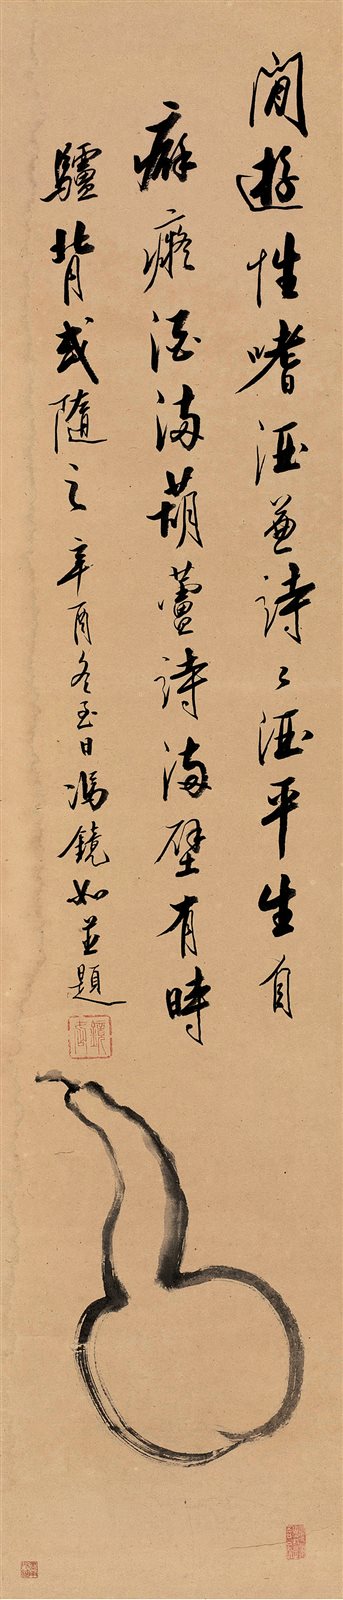 閒遊性嗜酒兼詩〻酒平生自
癖癡酒滿葫蘆詩滿壁有時
驢背或隨之 辛酉冬至日馮鏡如並題